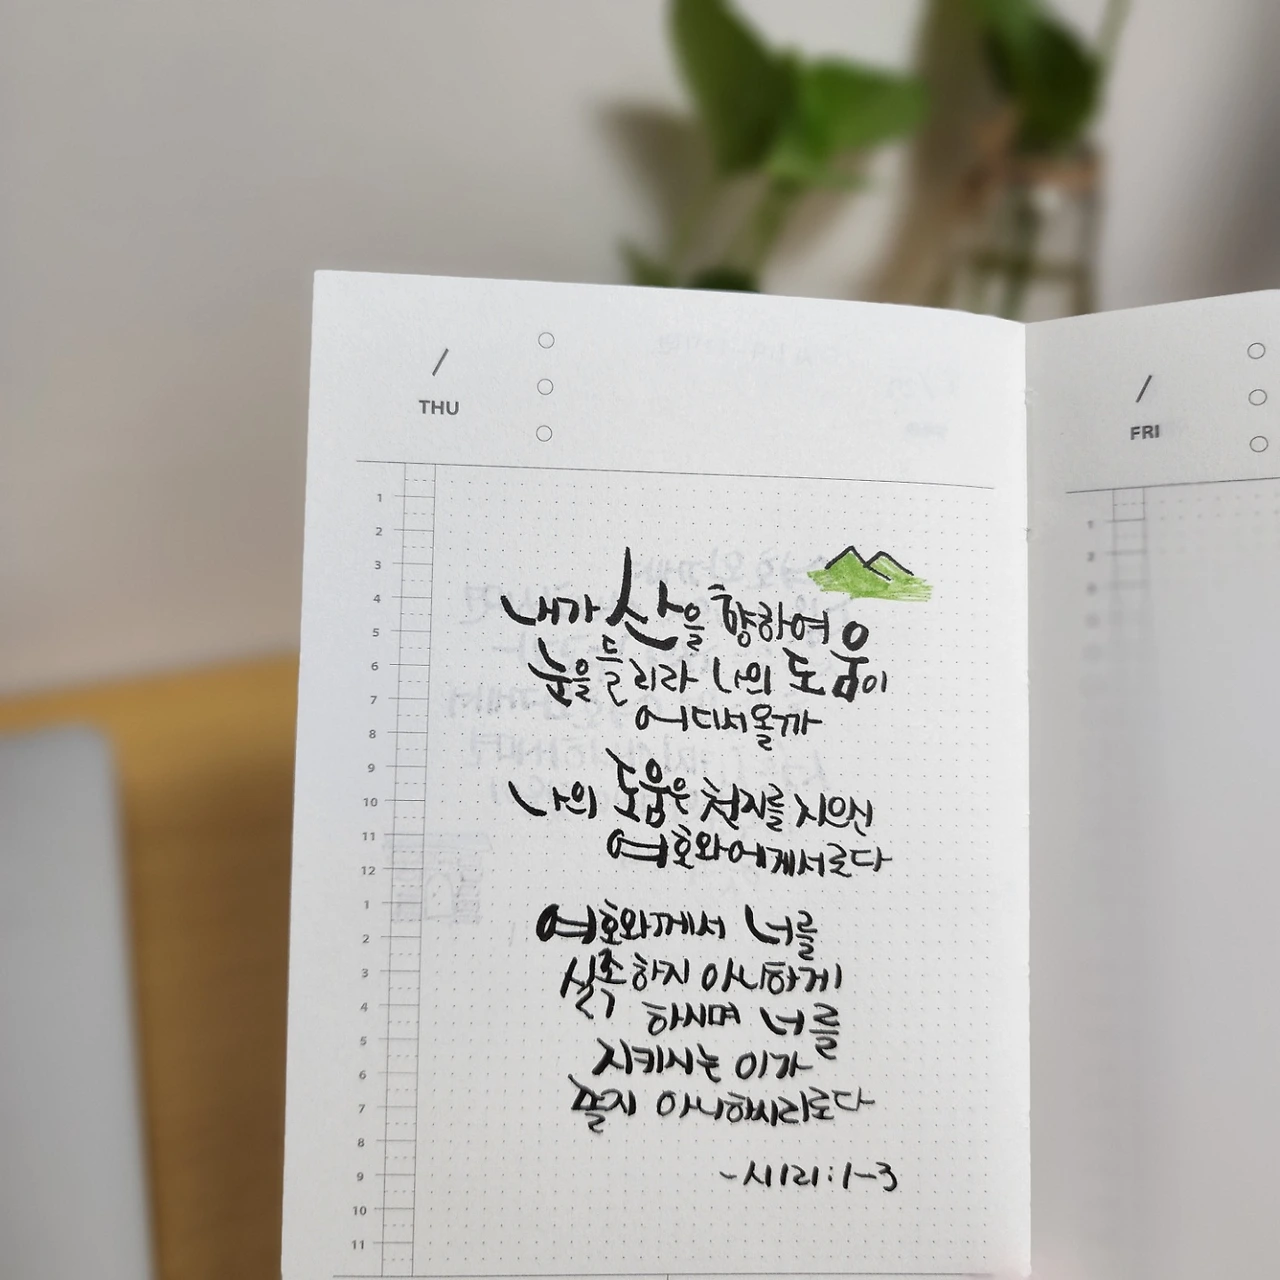 /
THU
1
2
3
4
5
6
7
8
9
10
11
12
1
2
3
4
5
6
7
8
9
10
11
내가 산을 향하여
눈을 들리라 나의 도움이
어디서 올까
나의 도움은 천지를 지으신
여호와에게서로다
여호와께서 너를
실족하지 아니하게
하시며 너를
지키시는 이가
졸지 아니하시리로다
-시121:1-3
/
FRI
1
2